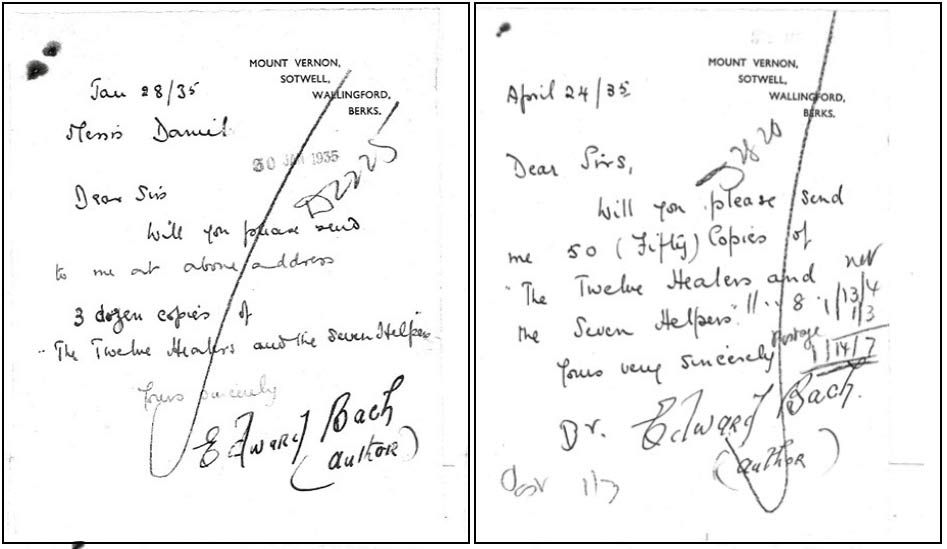 MOUNT VERNON,
SOTWELL,
WALLINGFORD,
BERKS.
Jan 28/35
Messrs Daniel
30 JAN 1935
Dear Sirs
Will you please send
to me at above address
3 dozen copies of
"The Twelve Healers and the Seven Helpers"
Yours sincerely
Edward Bach
(author)
MOUNT VERNON,
SOTWELL,
WALLINGFORD,
BERKS.
April 24/35
Dear Sirs,
Will you please send
me 50 (Fifty) Copies of
"The Twelve Healers and
the Seven Helpers." 8 1/13/4
Postage 1/3
1/14/7
Yours very sincerely
Dr. Edward Bach.
(author)
1/3